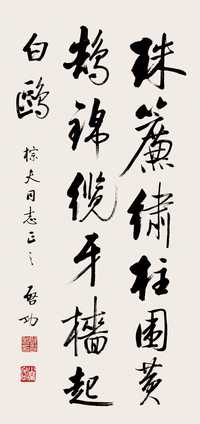 珠簾繡柱圍黃
鵠錦纜牙檣起
白鷗
棕夫同志正之
啟功